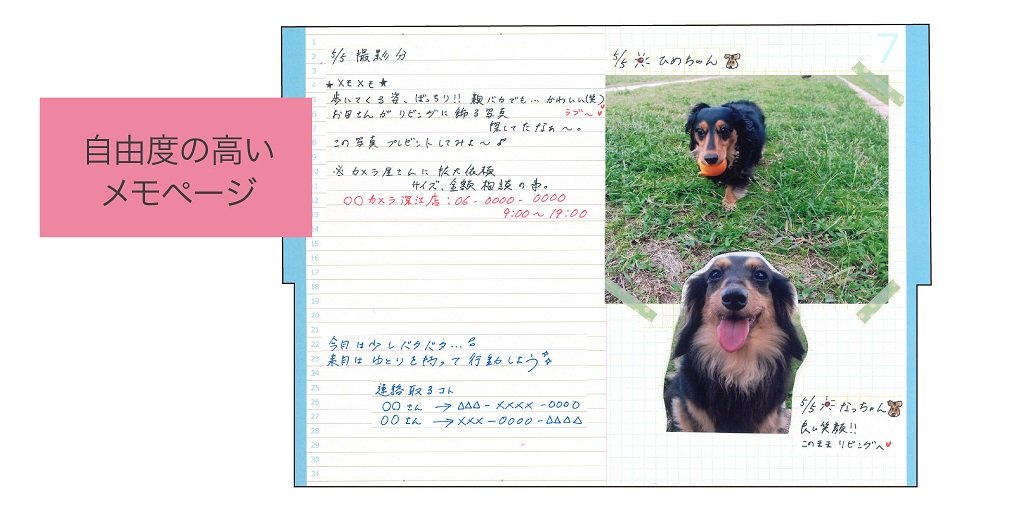 自由度の高い
メモページ
1
2
3
4
5
6
7
8
9
10
11
12
13
14
15
16
17
18
19
20
21
22
23
24
25
26
27
28
29
30
31
5/5 撮影分
★メモメモ★
歩いてくる姿、ばっちり!! 親バカでも… かわいい(笑)
お母さんがリビングに飾る写真 ラブ〜♥
探してたなぁ〜。
この写真プレゼントしてみよ〜♪
※ カメラ屋さんに拡大依頼
サイズ、金額相談の事。
〇〇カメラ深江店:06-0000-0000
9:00〜19:00
今月は少しバタバタ…
来月はゆとりを持って行動しよう
連絡取るコト
〇〇さん →△△△-××××-0000
〇〇さん →×××-0000-△△△△
7
5/5 ひめちゃん
5/5 なっちゃん
良い笑顔!!
このままリビングへ♥